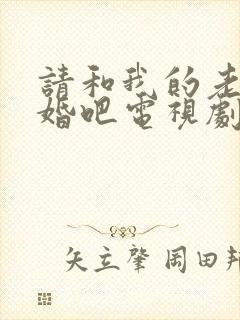 請和我的老
婚吧電視劇
矢立肇 岡田